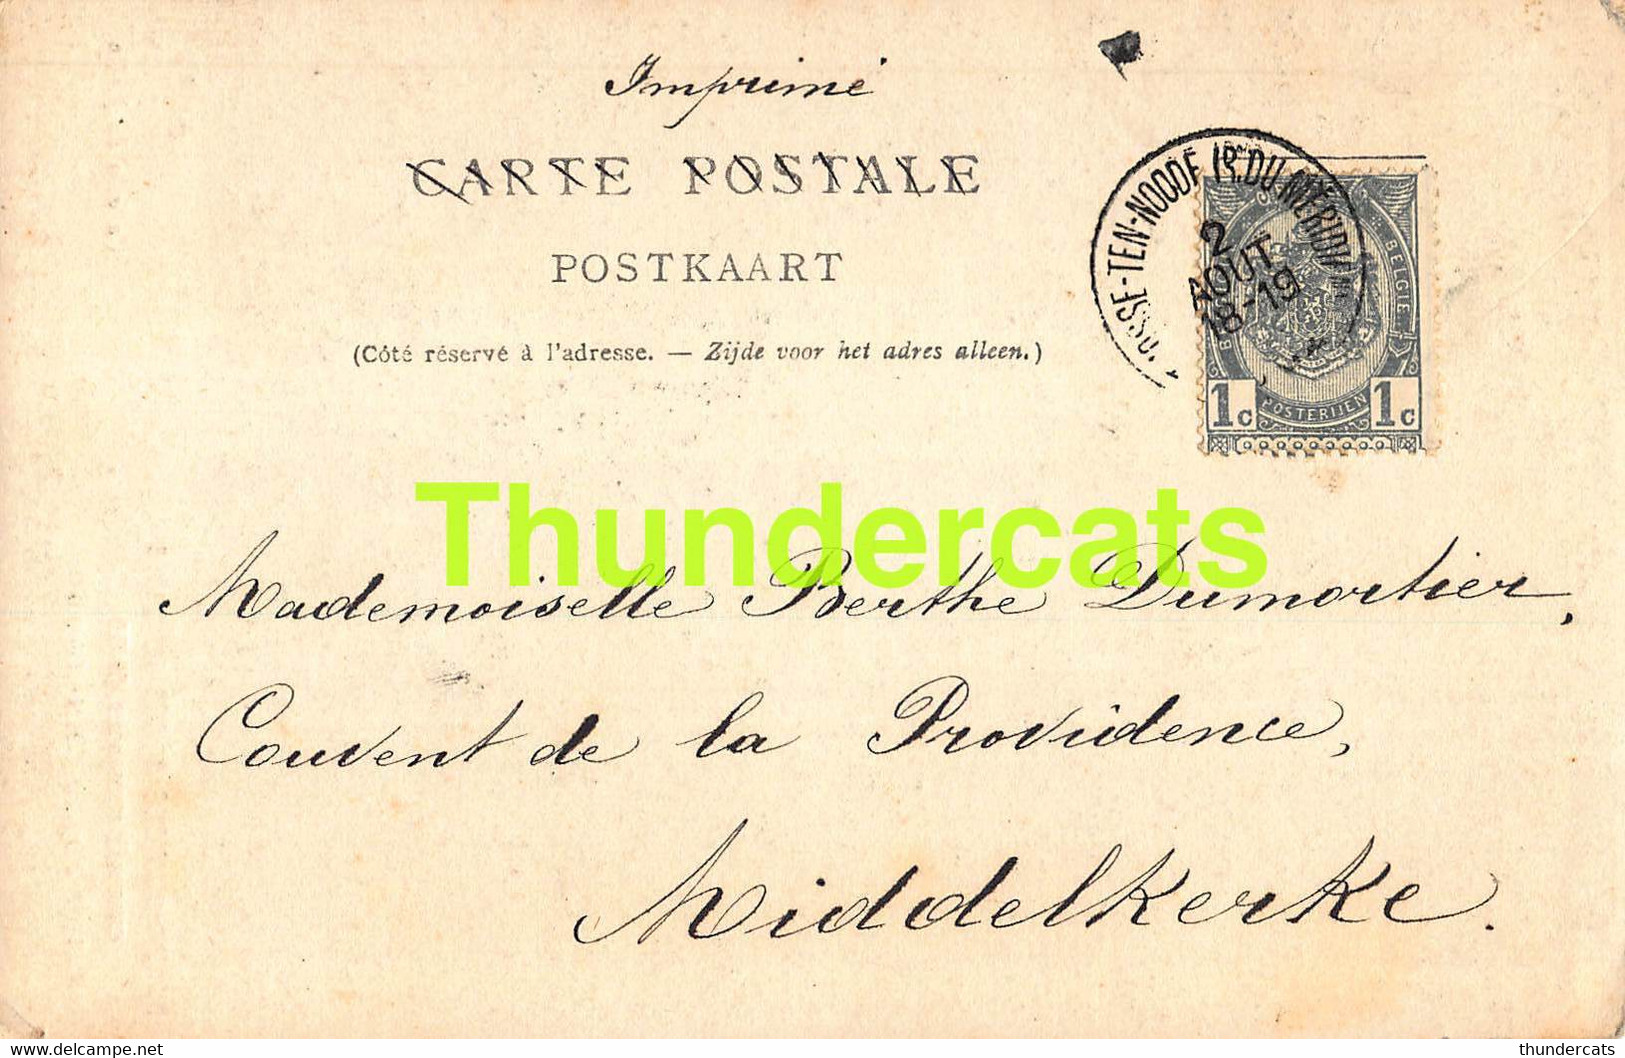 Imprimé
CARTE POSTALE
POSTKAART
(Côté réservé à l'adresse. — Zijde voor het adres alleen.)
SSE-TEN-NOODE (R. DU MÉRIDIEN
2
AOUT
18-19
BELGIE
POSTERIJEN
1c 1c
Thundercats
Mademoiselle Berthe Dumortier,
Couvent de la Providence,
Middelkerke.
thundercats thundercats